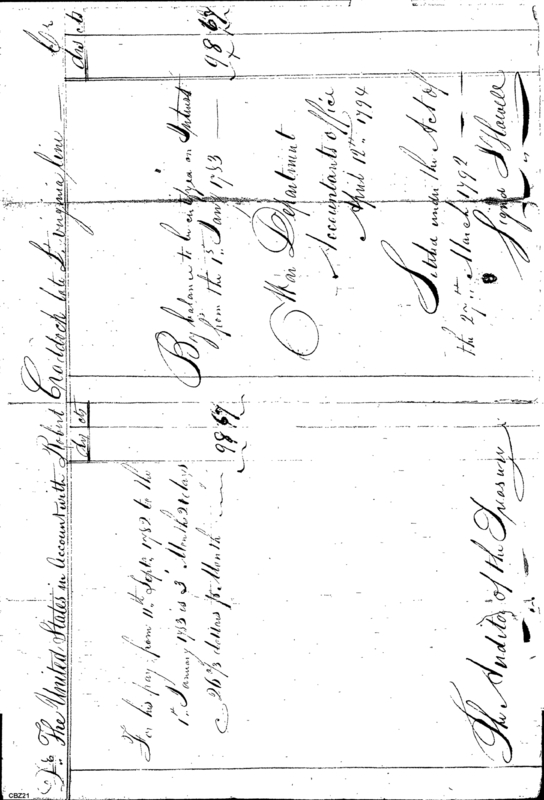 Dr. The United States in Account with Robert Craddock late Lt. Virginia line — Cr
drs cts
To his pay from 11th Septr. 1782 to the
1st January 1783 is 3 Months 21 days
@ 26⅔ dollars pr. Month — 98 67
The Auditor of the Treasury
drs cts
By balance to be certifyed on Interest
from the 1st Jany. 1783 — 98 67
War Department
Accountants office
April 12th 1794
Settled under the Act of
the 27th March 1792
Signed J Howell
CBZ21